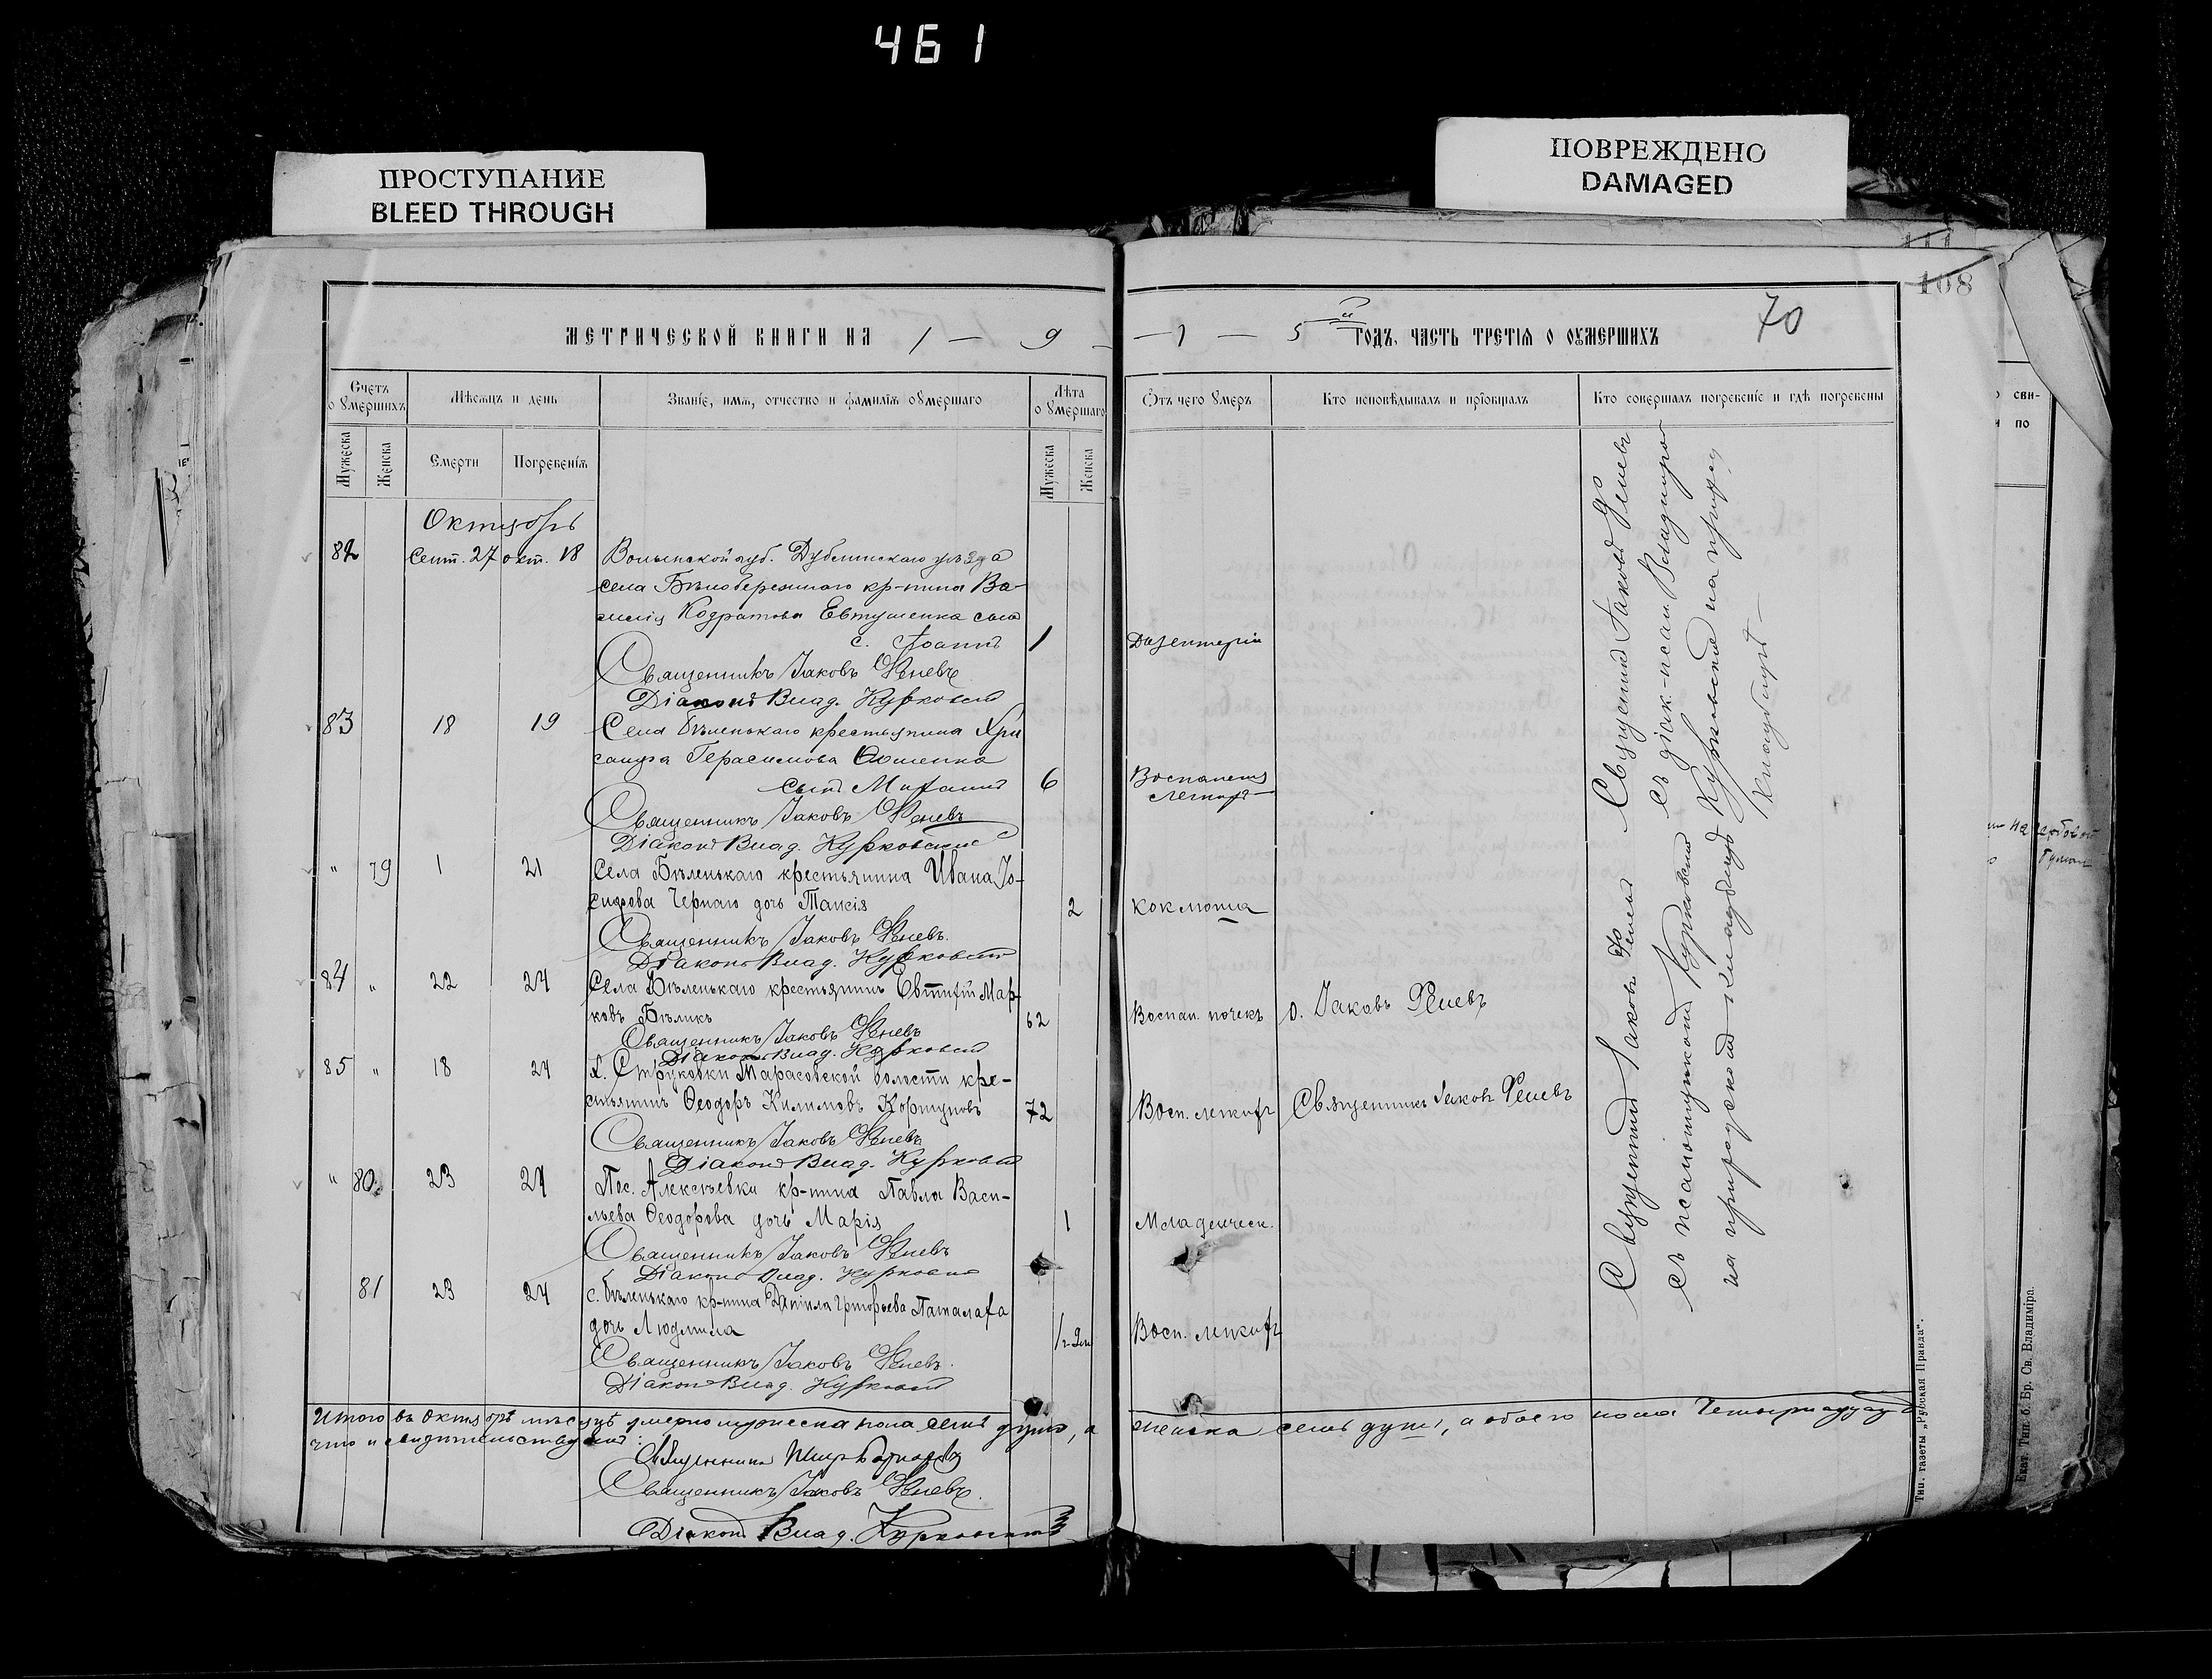 461
ПРОСТУПАНИЕ
BLEED THROUGH
ПОВРЕЖДЕНО
DAMAGED
108
МЕТРИЧЕСКОЙ КНИГИ НА 1 — 9 — 1 — 5 й ГОДЪ, ЧАСТЬ ТРЕТІЯ О ОУМЕРШИХЪ
70
Счетъ оумершихъ
Мужеска
Женска
Мѣсяцъ и день
Смерти
Погребенія
Званіе, имя, отчество и фамилія оумершаго
Лѣта оумершаго
Мужеска
Женска
Отъ чего умеръ
Кто исповѣдывалъ и пріобщалъ
Кто совершалъ погребеніе и гдѣ погребены
Октябрь
82 Сент. 27 окт. 18 Волынской губ. Дубенскаго уѣзда
села Бѣлобережнаго кр-нина Ва-
силія Кодратова Евтушенка сынъ
с. Іоаннъ 1 Дизентерія
Священникъ Іаковъ Феневъ
Діаконъ Влад. Курковскій
83 18 19 Села Бѣленькаго крестьянина Хри
санфа Герасимова
сынъ Митрофанъ 6 Воспаленія
легкихъ
Священникъ Іаковъ Феневъ
Діаконъ Влад. Курковскій
" 79 1 21 Села Бѣленькаго крестьянина Ивана Іо-
сифова Чернаго дочь Таисія 2 коклюша
Священникъ Іаковъ Феневъ.
Діаконъ Влад. Курковскій
84 " 22 24 Села Бѣленькаго крестьянинъ Евтихій Мар-
ковъ Бѣликъ 62 Воспал. почекъ о. Іаковъ Феневъ
Священникъ Іаковъ Феневъ
Діаконъ Влад. Курковскій
85 " 18 24 х. Струковки Марасовской волости кре-
стьянинъ Ѳеодоръ Климовъ Кортуновъ 72 Восп. легкихъ Священникъ Іаковъ Феневъ
Священникъ Іаковъ Феневъ
Діаконъ Влад. Курковскій
" 80 23 24 Пос. Алексѣевки кр-нина Павла Васи-
льева Ѳеодорова дочь Марія 1 Младенческ.
Священникъ Іаковъ Феневъ
Діаконъ Влад. Курковскій
81 23 24 с. Бѣленькаго кр-нина Даніила Григорьева Паталаха
дочь Людмила Восп. легкихъ
Священникъ Іаковъ Феневъ.
Діаконъ Влад. Курковскій
Священникъ Іаковъ Феневъ
съ діак.-псал. Владиміро
Курковскій на приход
кладбищѣ
Священникъ Іаковъ Фенев
съ псаломщикомъ Курковскій
на приходскомъ кладбищѣ
Итого въ октябрѣ мѣсяцѣ умерло мужеска пола семь душъ, а женска семь душъ, а обоего пола четырнадцать
что и свидѣтельствуемъ:
Священникъ
Священникъ Іаковъ Феневъ.
Діаконъ Влад. Курковскій
Тип. газеты „Русская Правда".
Екат. Тип. б. Бр. Св. Владиміра.